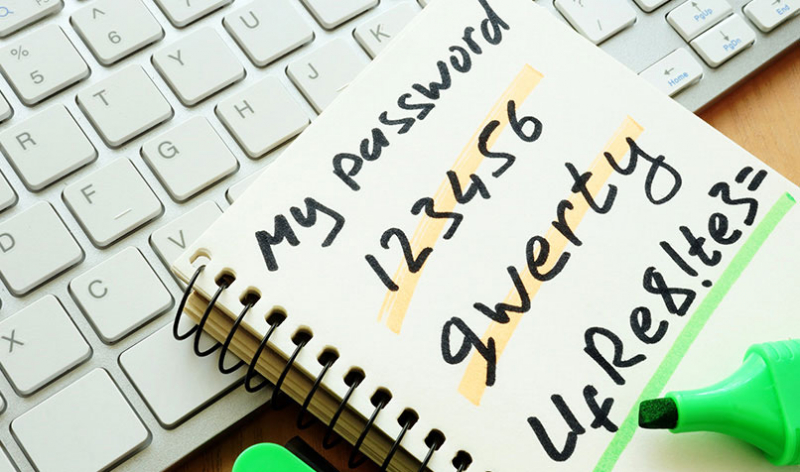 My password
123456
qwerty
UfRe8!te3=
% 5
^ 6
R T Y U
D F G H J K
X C V
PgUp
PgDn
Home
End